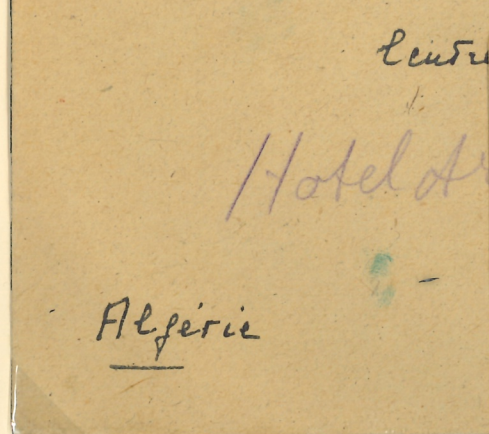 Centre
Hotel
Algérie